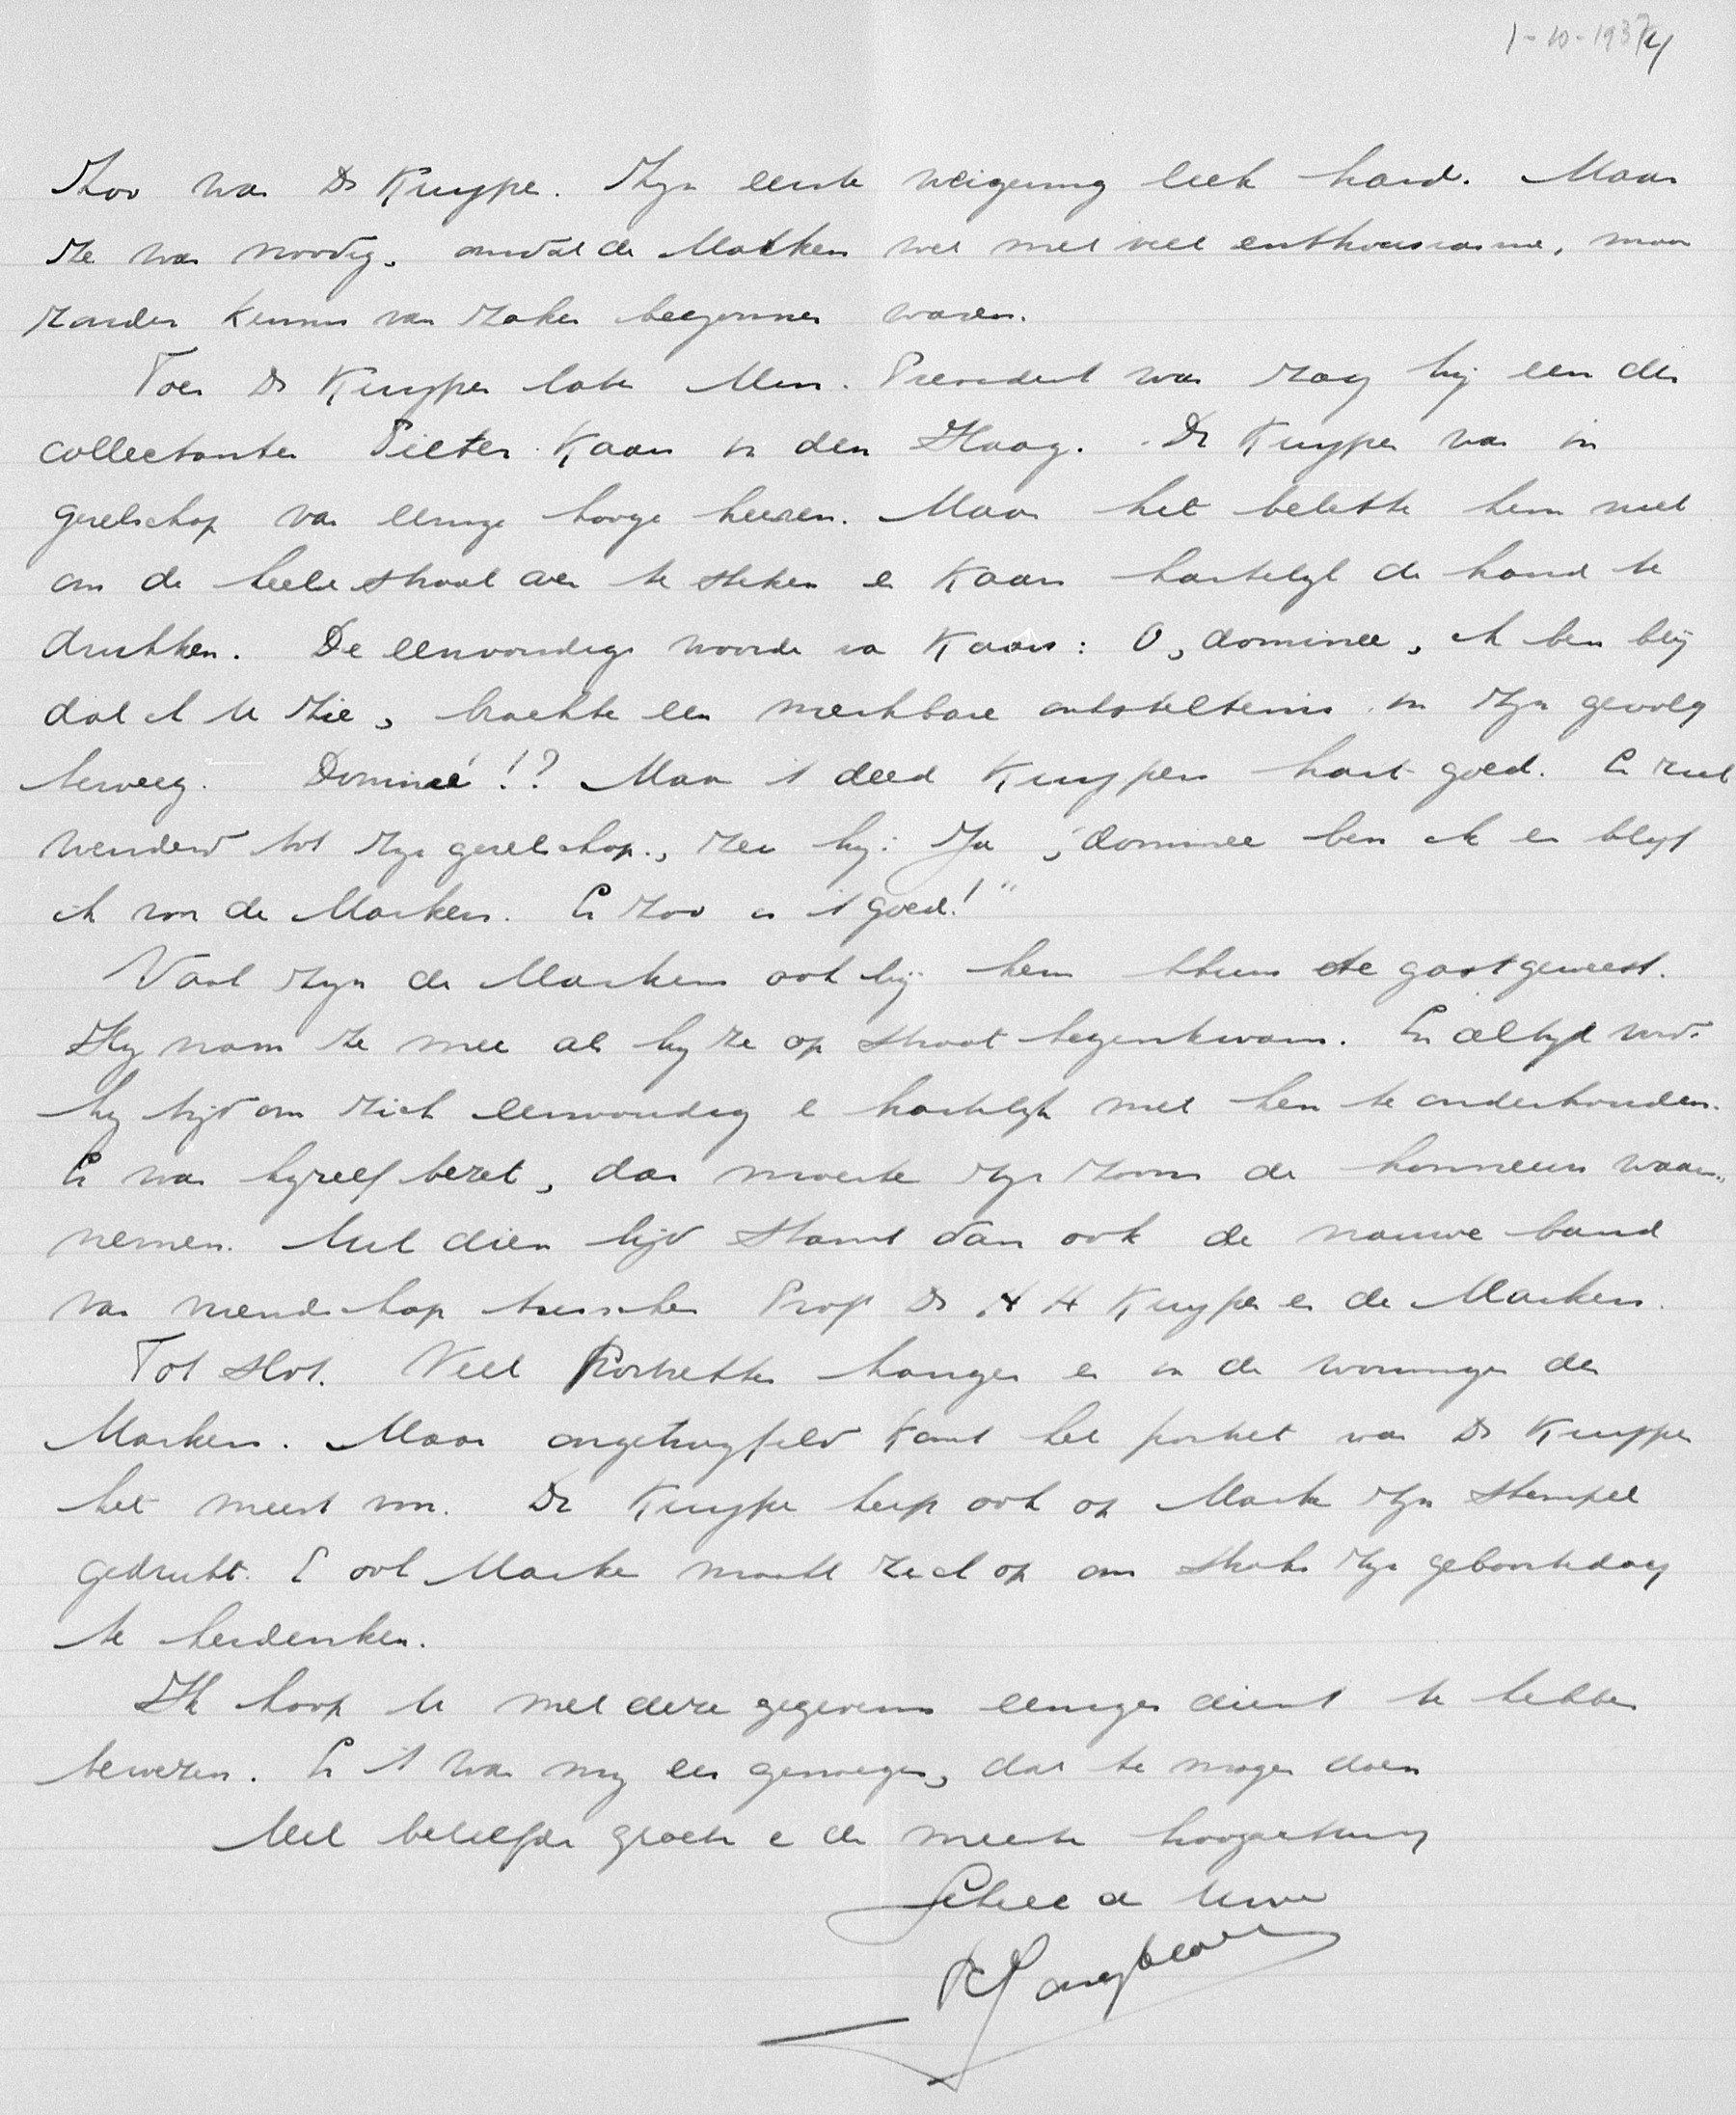 1-10-1937/4
Zoo was Dr Kuyper. Zijn eerste weigering leek hard. Maar
ze was noodig, omdat de Markers wel met veel enthousiasme, maar
zonder kennis van zaken begonnen waren.
Toen Dr Kuyper later Min. President was zag hij een der
collectanten Pieter Kaars in den Haag. Dr Kuyper was in
gezelschap van eenige hooge heeren. Maar het belette hem niet
om de heele straat over te steken en Kaars hartelijk de hand te
drukken. De eenvoudige woorden van Kaars: O, dominee, ik ben blij
dat ik U zie, brachten een merkbare ontsteltenis in zijn gevolg
teweeg. Dominee!!? Maar 't deed Kuypers hart goed. En zich
wendend tot zijn gezelschap, zei hij: Ja, "dominee ben ik en blijf
ik voor de Markers. En zoo is 't goed!"
Vaak zijn de Markers ook bij hem thuis te gast geweest.
Hij nam ze mee als hij ze op straat tegenkwam. En altijd vond
hij tijd om zich eenvoudig en hartelijk met hen te onderhouden.
En was hijzelf bezet, dan moesten zijn zoons de honneurs waar-
nemen. Uit dien tijd stamt dan ook de nauwe band
van vriendschap tusschen Prof Dr H H Kuyper en de Markers.
Tot slot. Veel Portretten hangen er in de woningen der
Markers. Maar ongetwijfeld komt het portret van Dr Kuyper
het meest voor. Dr Kuyper heeft ook op Marken zijn stempel
gedrukt. En ook Marken maakt zich op om straks zijn geboortedag
te herdenken.
Ik hoop U met deze gegevens eenigen dienst te hebben
bewezen. En 't was mij een genoegen, dat te mogen doen
Met beleefde groeten en de meeste hoogachting
Geheel de Uwe